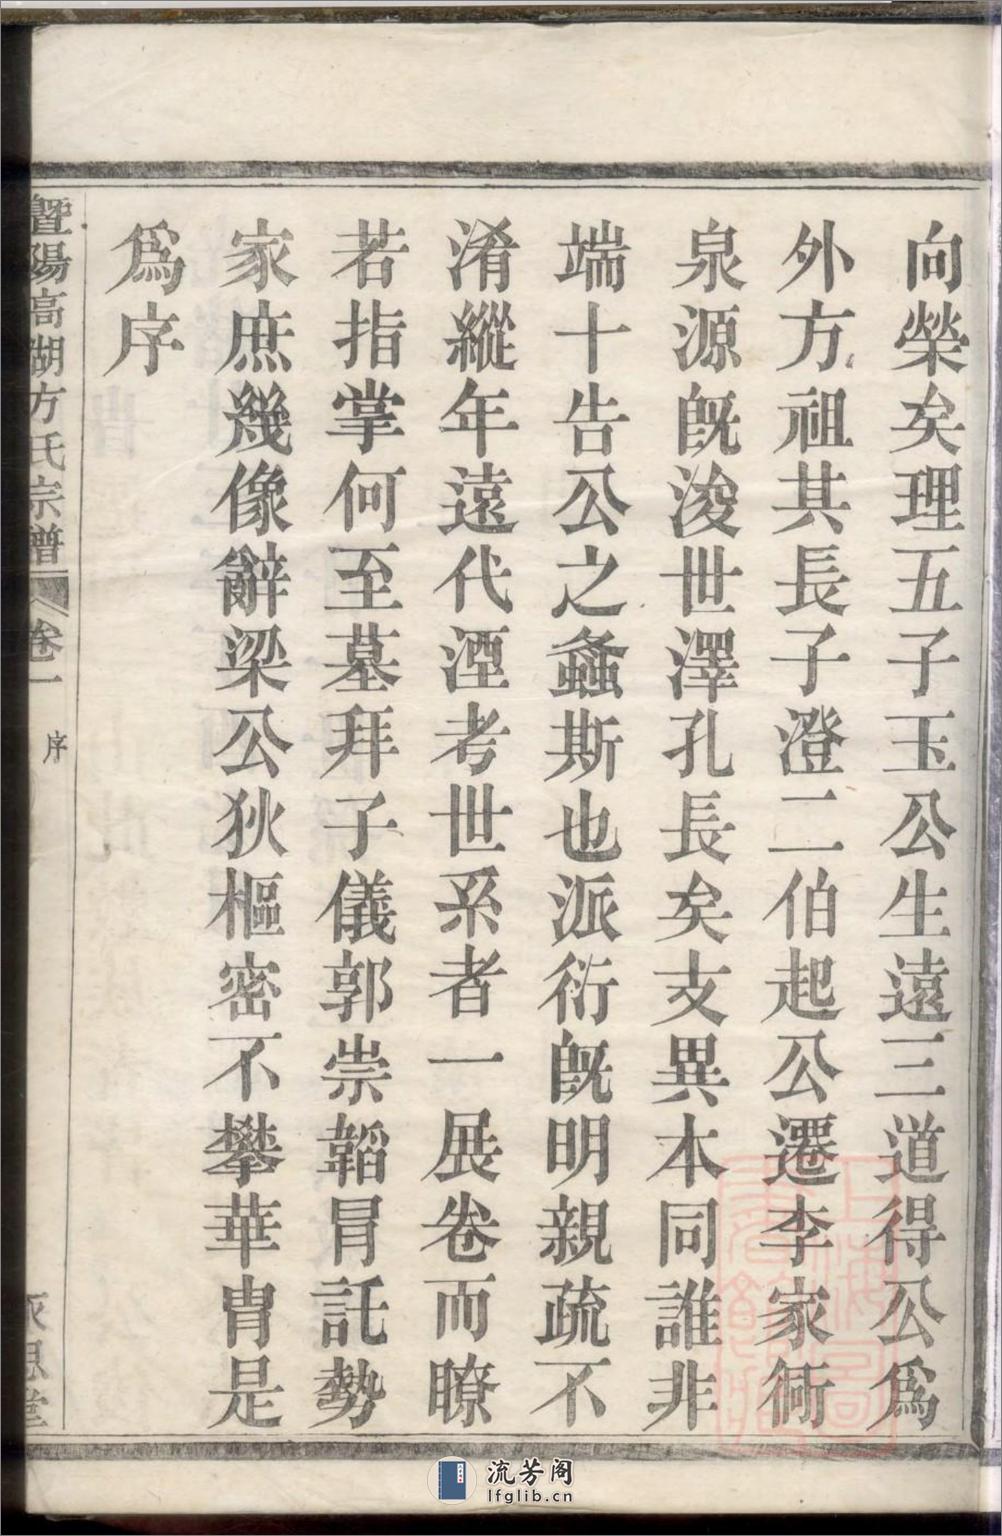 向榮矣理五子玉公生遠三道得公爲
外方祖其長子澄二伯起公遷李家衖
泉源旣浚世澤孔長矣支異本同誰非
端十告公之螽斯也派衍旣明親疏不
淆縱年遠代湮考世系者一展卷而瞭
若指掌何至墓拜子儀郭崇韜冐託勢
家庶幾像辭梁公狄樞密不攀華胄是
爲序
暨陽高湖方氏宗譜
卷一
序
永思堂
流芳阁
lfglib.cn